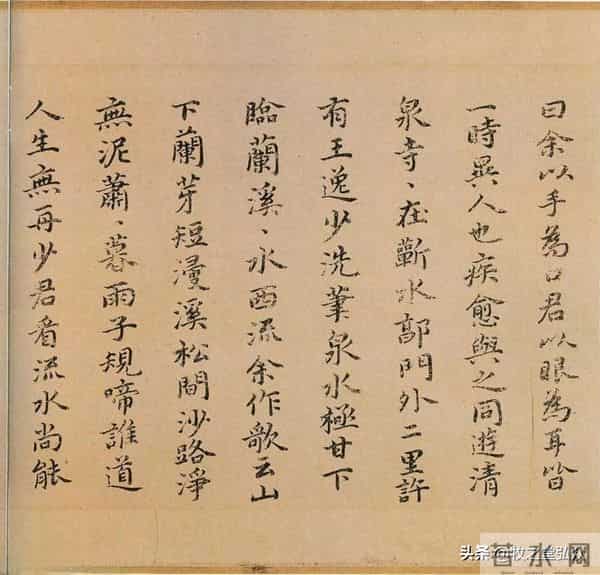 曰余以手為口君以眼為耳皆
一時異人也疾愈與之同遊清
泉寺、在蘄水郭門外二里許
有王逸少洗筆泉水極甘下
臨蘭溪、水西流余作歌云山
下蘭芽短浸溪松間沙路淨
無泥蕭、暮雨子規啼誰道
人生無再少君看流水尚能
头条